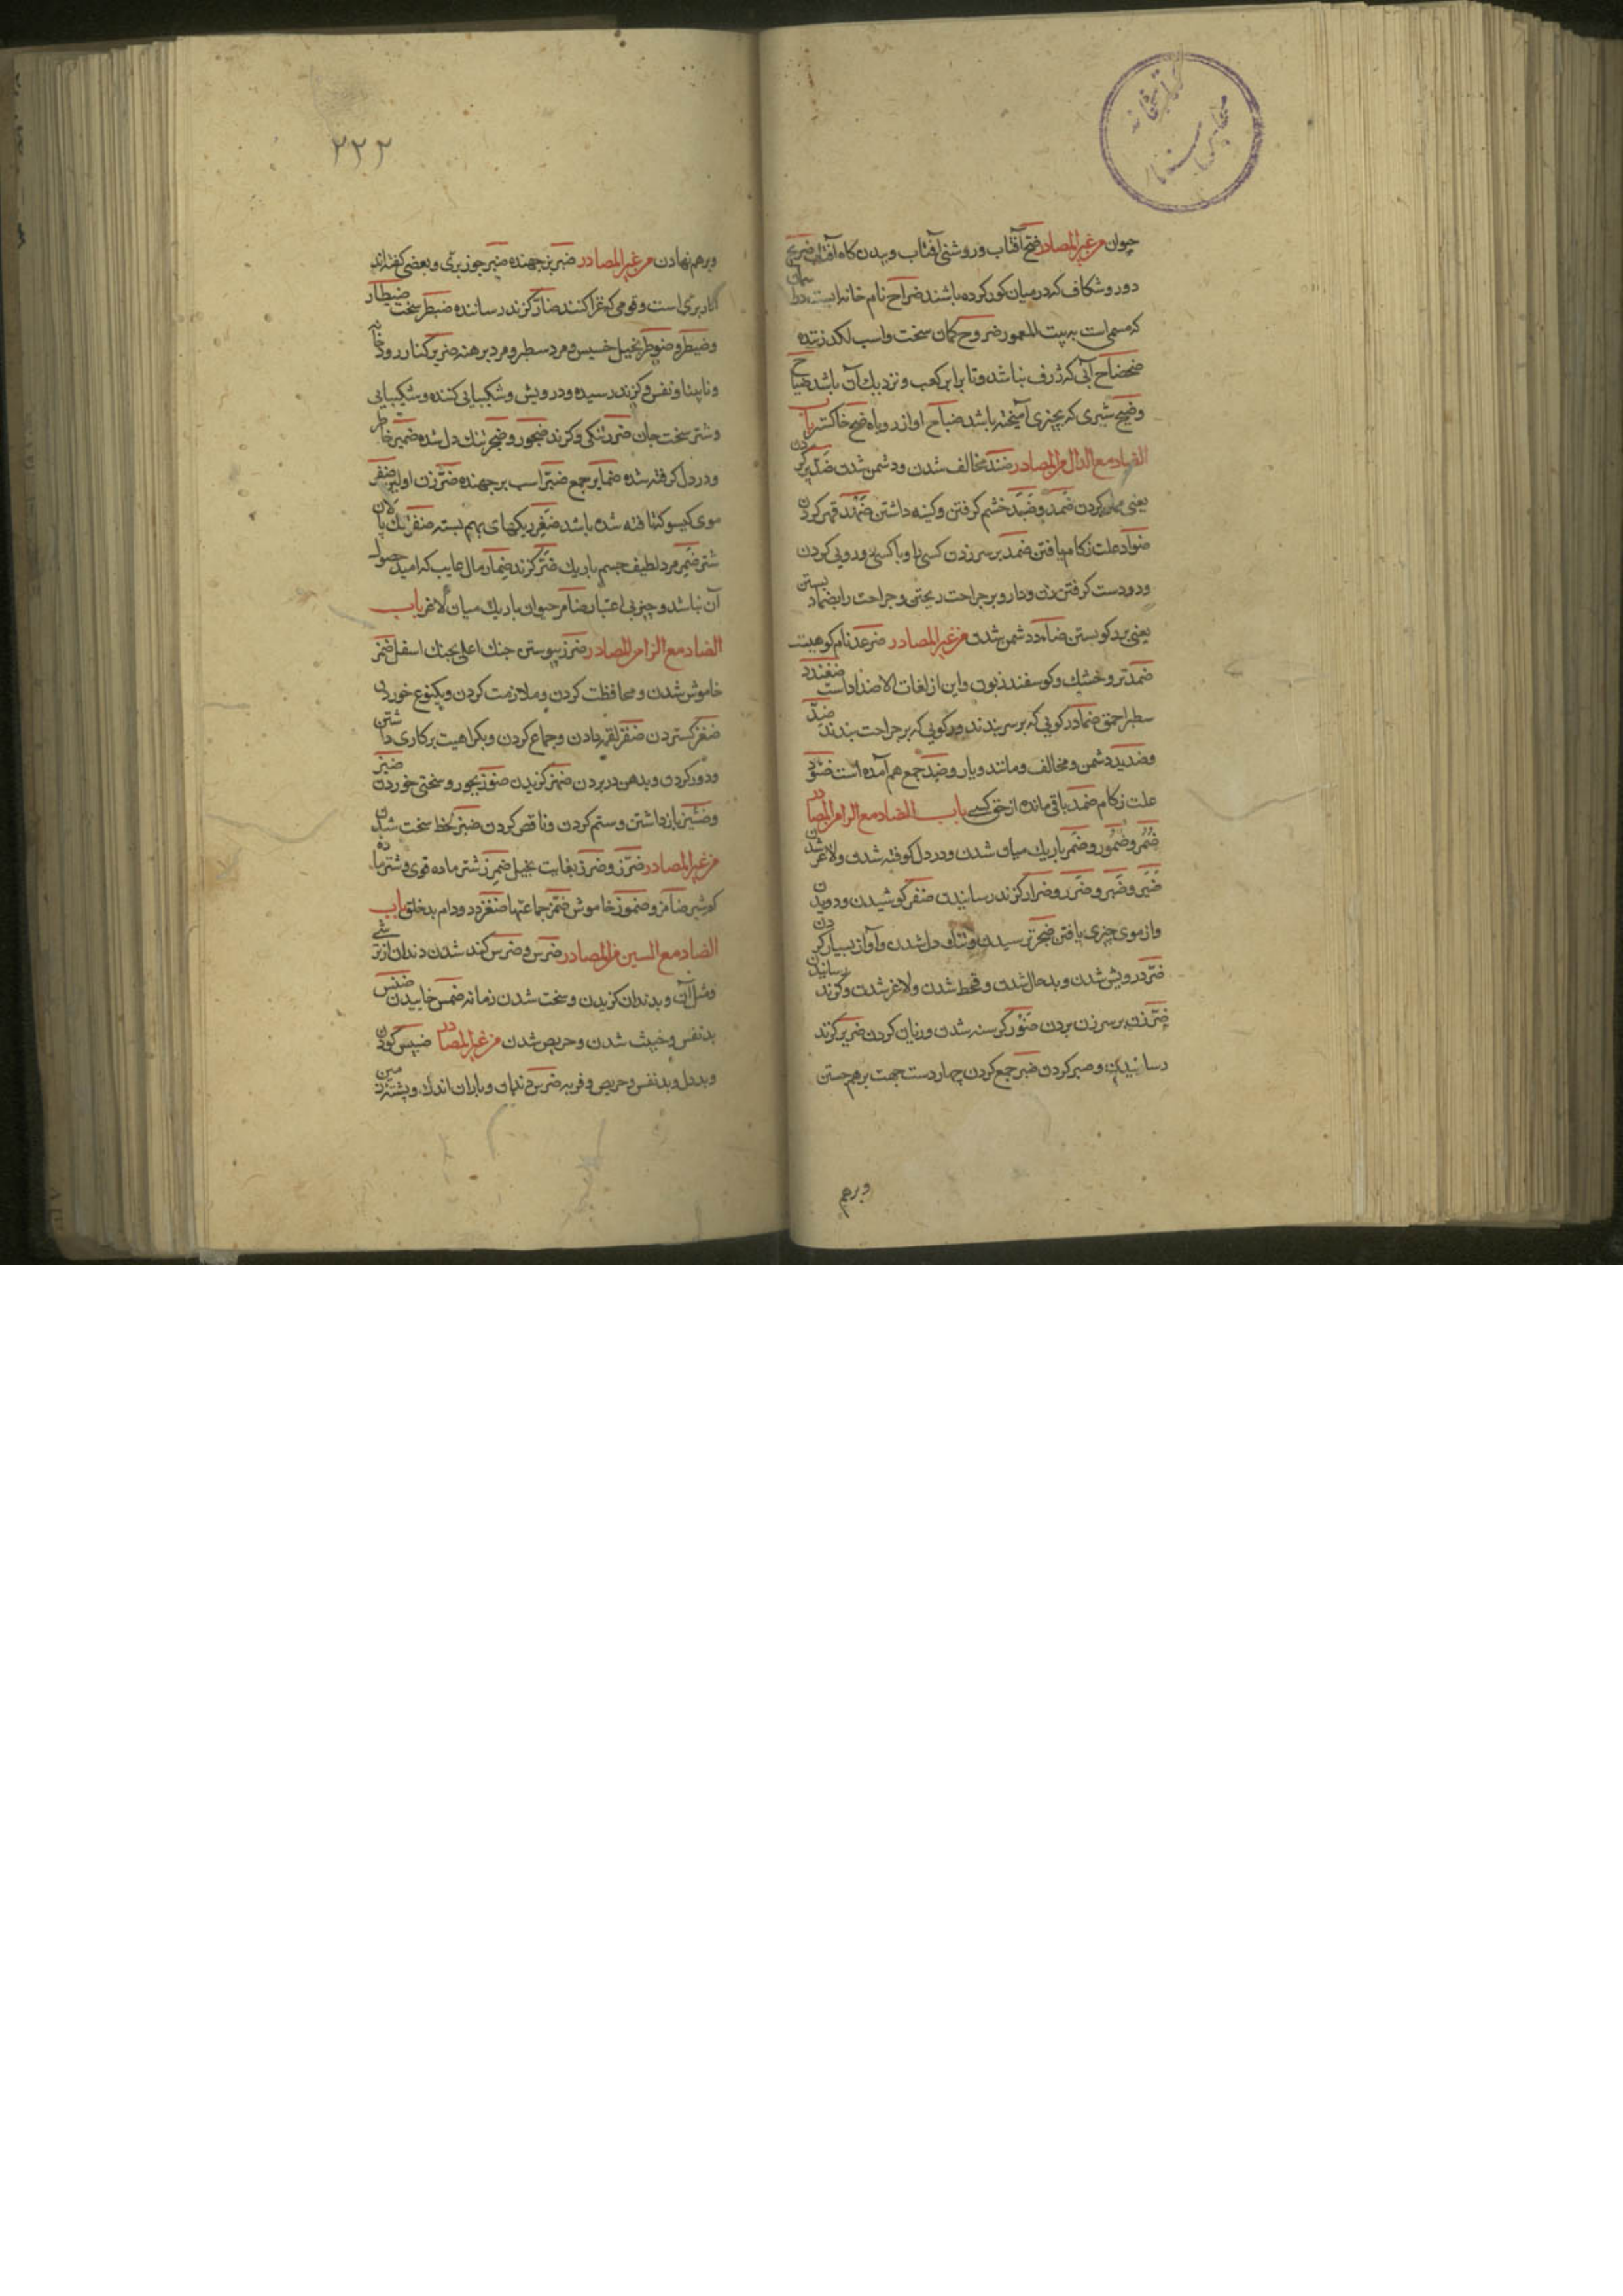 حیوان من غیر المصادر ضح آفتاب و روشنی آفتاب و بیدن کاه آفتاب ضریح
دور و شکاف که در میان کور کرده باشند ضراح نام خانه ایست در آسمان
که مسمی است به بیت المعمور ضروح کمان سخت و اسب لکد زننده
ضحضاح آبی که ژرف نباشد و تا برابر کعب و نزدیک آن باشد ضیاح
و ضیح شیری که بچیزی آمیخته باشد ضباح اواز روباه ضبح خاکستر باب
الضاد مع الدال من المصادر ضد مخالف شدن و دشمن شدن ضد پر کردن
یعنی مملو کردن ضمد و ضبد خشم کرفتن و کینه داشتن ضهد قهر کردن
ضواد علت زکام یافتن ضمد بر سر زدن کسی را و با کسی دورویی کردن
و دو دست کرفتن زن و دارو بر جراحت ریختن و جراحت را بضماد بستن
یعنی برکو بستن ضآد دشمن شدن من غیر المصادر ضرغد نام کوهیست
ضمد تر و خشک و کوسفند زبون و این از لغات الاضداد است ضفندد
سطبر احمق ضماد رکویی که بر سر بندند و رکویی که بر جراحت بندند ضد
و ضدید دشمن و مخالف و مانند و یار و ضد جمع هم آمده است ضؤد
علت زکام ضمد باقی مانده از حق کسی باب الضاد مع الرا من المصادر
ضمر و ضمور و ضمر باریک میان شدن و در دل کوفته شدن و لاغر شدن
ضیر و ضر و ضرر و ضرار کزند رسانیدن ضفر کوشیدن و دویدن
و از موی چیزی بافتن ضجر ترسیدن و تنک دل شدن و آواز بسیار کردن
ضر درویش شدن و بدحال شدن و قحط شدن و لاغر شدن و کزند رسانیدن
ضر زن بر سر زن بردن ضور کرسنه شدن و زیان کردن ضریر کزند
رسانیدن و صبر کردن ضبر جمع کردن چهار دست جهت برهم جستن
وبرهم
۲۲۲
و برهم نهادن من غیر المصادر ضبر بز جهنده ضبر جوز بری و بعضی کفته اند
انار بری است و قومی که غزا کنند ضار کزند رساننده ضبطر سخت ضیطار
و ضیطر و ضوطر بخیل خسیس و مرد سطبر و مرد برهنه ضریر کنار رودخانه
و نابینا و نفس و کزند رسیده و درویش و شکیبایی کننده و شکیبایی
و شتر سخت جان ضرر تنکی و کزند ضجور و ضجر تنک دل شده ضمیر خاطر
و در دل کرفته شده ضمایر جمع ضبر اسب بر جهنده ضر زن اولین ضفر
موی کیسو کتافته شده باشد ضفر ریکهای بهم بسته ضفر تنک پالان
شتر ضمر مرد لطیف جسم باریک ضر کزند ضمار مال غایب که امید حصول
آن نباشد و چیز بی اعتبار ضامر حیوان باریک میان لاغر باب
الضاد مع الزا من المصادر ضزز پیوستن حنک اعلی بحنک اسفل ضمز
خاموش شدن و محافظت کردن و ملازمت کردن و یکنوع خوردن
ضفز کستردن ضفز لقمه دادن و جماع کردن و بکراهیت بر کاری داشتن
و دور کردن و بدهن در بردن ضهز کزیدن ضوز بجور و سختی خوردن ضیز
و ضئیز باز داشتن و ستم کردن و ناقص کردن ضبز لحظ سخت شدن
من غیر المصادر ضرز و ضرز بغایت بخیل ضمرز شتر ماده قوی و شتر ماده
کم شیر ضامز و ضموز خاموش ضمز جماعتها ضغز دد و دام بدخلق باب
الضاد مع السین من المصادر ضرس و ضرس کند شدن دندان از ترشی
و مثل آن و بدندان کزیدن و سخت شدن زمانه ضمس خاییدن ضنس
بدنفس و خبیث شدن و حریص شدن من غیر المصادر ضبیس کودن
و بددل و بدنفس و حریص و فربه ضرس دندان و باران اندک و پشته زمین